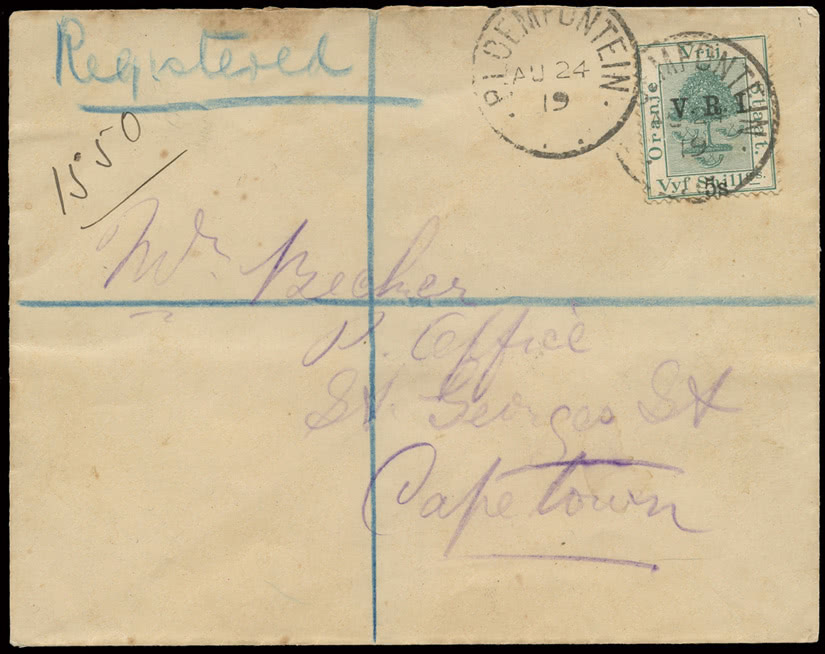 Registered
1550
BLOEMFONTEIN.
AU 24
19
Vrij
Oranje
V.R.I.
Vyf Shillings.
5s
Mr Becker
P. Office
St. Georges St
Capetown